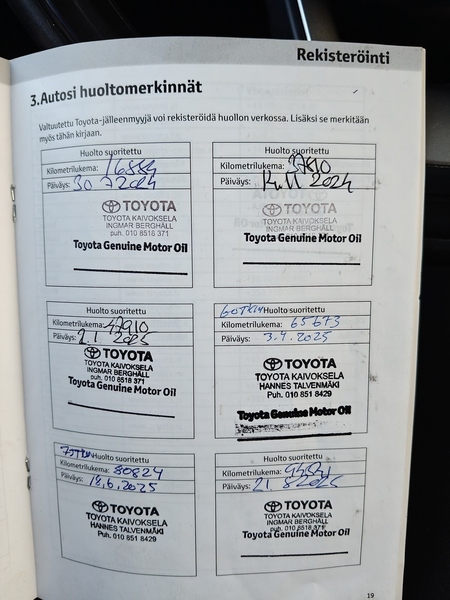 Rekisteröinti
3.Autosi huoltomerkinnät
Valtuutettu Toyota-jälleenmyyjä voi rekisteröidä huollon verkossa. Lisäksi se merkitään
myös tähän kirjaan.
Huolto suoritettu
Kilometrilukema: 16884
Päiväys: 30.7.2024
TOYOTA
TOYOTA KAIVOKSELA
INGMAR BERGHÄLL
puh. 010 8518 371
Toyota Genuine Motor Oil
Huolto suoritettu
Kilometrilukema:
Päiväys: 2024
TOYOTA
TOYOTA KAIVOKSELA
INGMAR BERGHÄLL
puh. 010 8518 371
Toyota Genuine Motor Oil
Huolto suoritettu
Kilometrilukema: 47910
Päiväys: 2.1.2025
TOYOTA
TOYOTA KAIVOKSELA
INGMAR BERGHÄLL
puh. 010 8518 371
Toyota Genuine Motor Oil
60TKM Huolto suoritettu
Kilometrilukema: 65673
Päiväys: 3.4.2025
TOYOTA
TOYOTA KAIVOKSELA
HANNES TALVENMÄKI
Puh. 010 851 8429
Toyota Genuine Motor Oil
75TKM Huolto suoritettu
Kilometrilukema: 80824
Päiväys: 18.6.2025
TOYOTA
TOYOTA KAIVOKSELA
HANNES TALVENMÄKI
Puh. 010 851 8429
Huolto suoritettu
Kilometrilukema:
Päiväys: 21.8.2025
TOYOTA
TOYOTA KAIVOKSELA
INGMAR BERGHÄLL
puh. 010 8518 371
Toyota Genuine Motor Oil
19